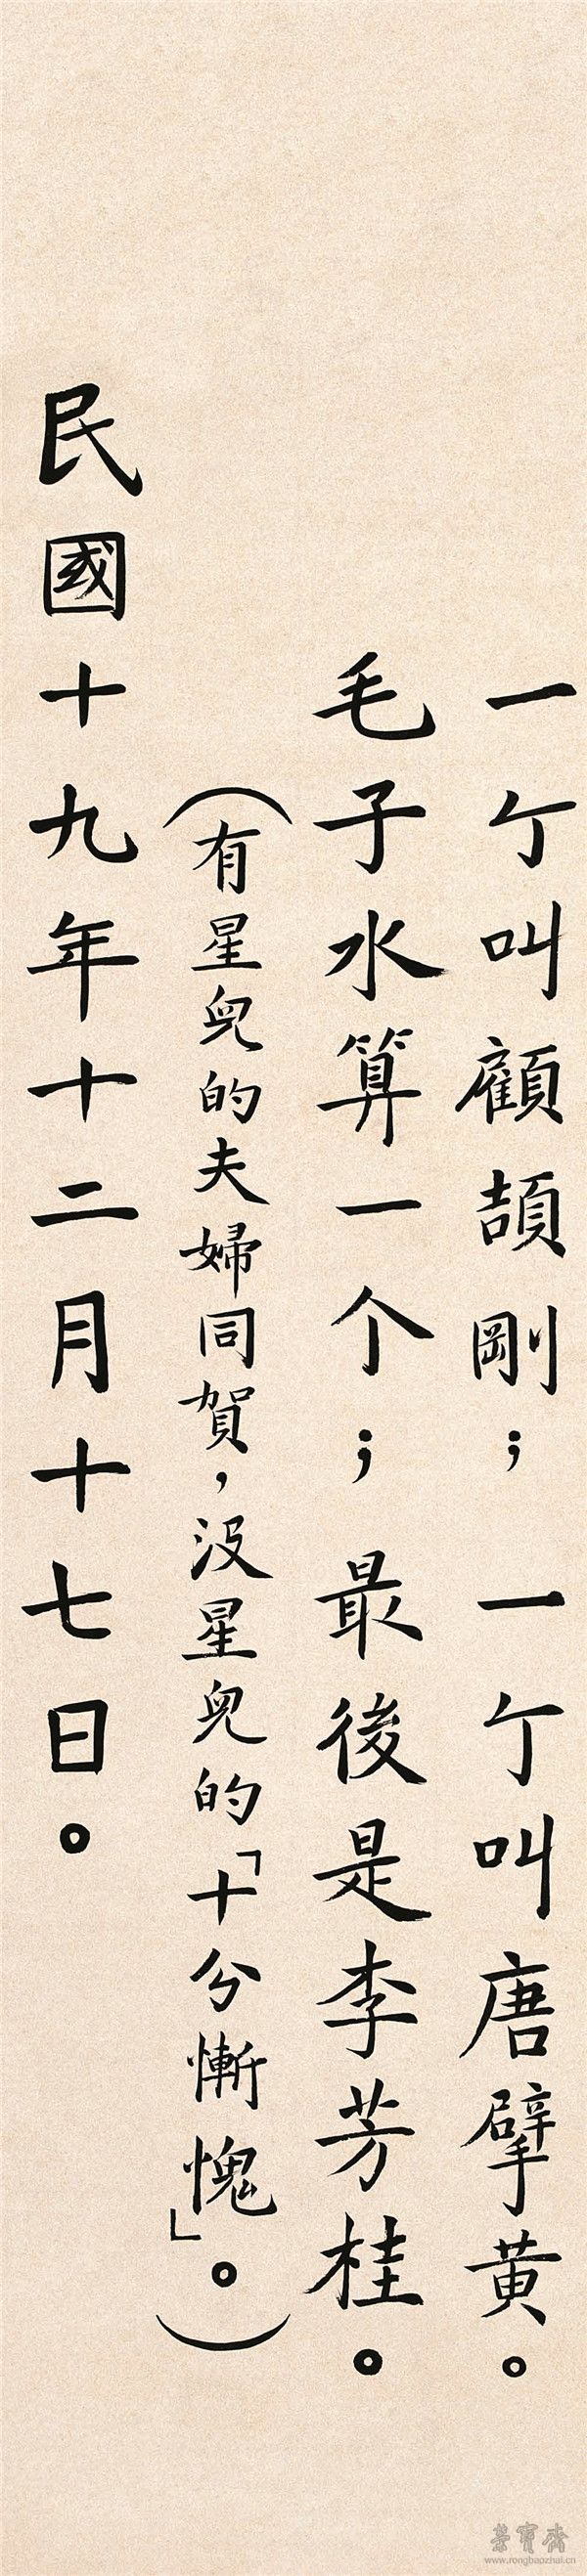 一亇叫顧頡剛；一亇叫唐擘黄。
毛子水算一个；最後是李芳桂。
（有星兒的夫婦同賀，没星兒的「十分慚愧」。）
民國十九年十二月十七日。
榮寶齋
www.rongbaozhai.cn